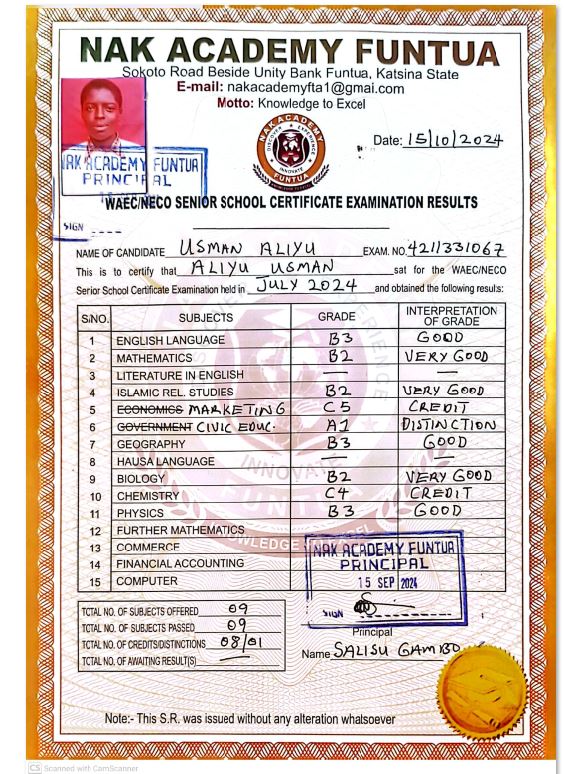 NAK ACADEMY FUNTUA
Sokoto Road Beside Unity Bank Funtua, Katsina State
E-mail: nakacademyfta1@gmai.com
Motto: Knowledge to Excel
NAK ACADEMY
DISCOVER EXPERIENCE
INNOVATE
FUNTUA
Date: 15/10/2024
NAK ACADEMY FUNTUA
PRINCIPAL
SIGN
WAEC/NECO SENIOR SCHOOL CERTIFICATE EXAMINATION RESULTS
NAME OF CANDIDATE USMAN ALIYU EXAM. NO. 4211331067
This is to certify that ALIYU USMAN sat for the WAEC/NECO
Senior School Certificate Examination held in JULY 2024 and obtained the following results:
S/NO. SUBJECTS GRADE INTERPRETATION OF GRADE
1 ENGLISH LANGUAGE B3 GOOD
2 MATHEMATICS B2 VERY GOOD
3 LITERATURE IN ENGLISH — —
4 ISLAMIC REL. STUDIES B2 VERY GOOD
5 ECONOMICS MARKETING C5 CREDIT
6 GOVERNMENT CIVIC EDUC. A1 DISTINCTION
7 GEOGRAPHY B3 GOOD
8 HAUSA LANGUAGE — —
9 BIOLOGY B2 VERY GOOD
10 CHEMISTRY C4 CREDIT
11 PHYSICS B3 GOOD
12 FURTHER MATHEMATICS
13 COMMERCE
14 FINANCIAL ACCOUNTING
15 COMPUTER
NAK ACADEMY FUNTUA
PRINCIPAL
15 SEP 2024
SIGN
TOTAL NO. OF SUBJECTS OFFERED 09
TOTAL NO. OF SUBJECTS PASSED 09
TOTAL NO. OF CREDITS/DISTINCTIONS 08/01
TOTAL NO. OF AWAITING RESULT(S) —
Principal
Name SALISU GAMBO
Note:- This S.R. was issued without any alteration whatsoever
CS Scanned with CamScanner